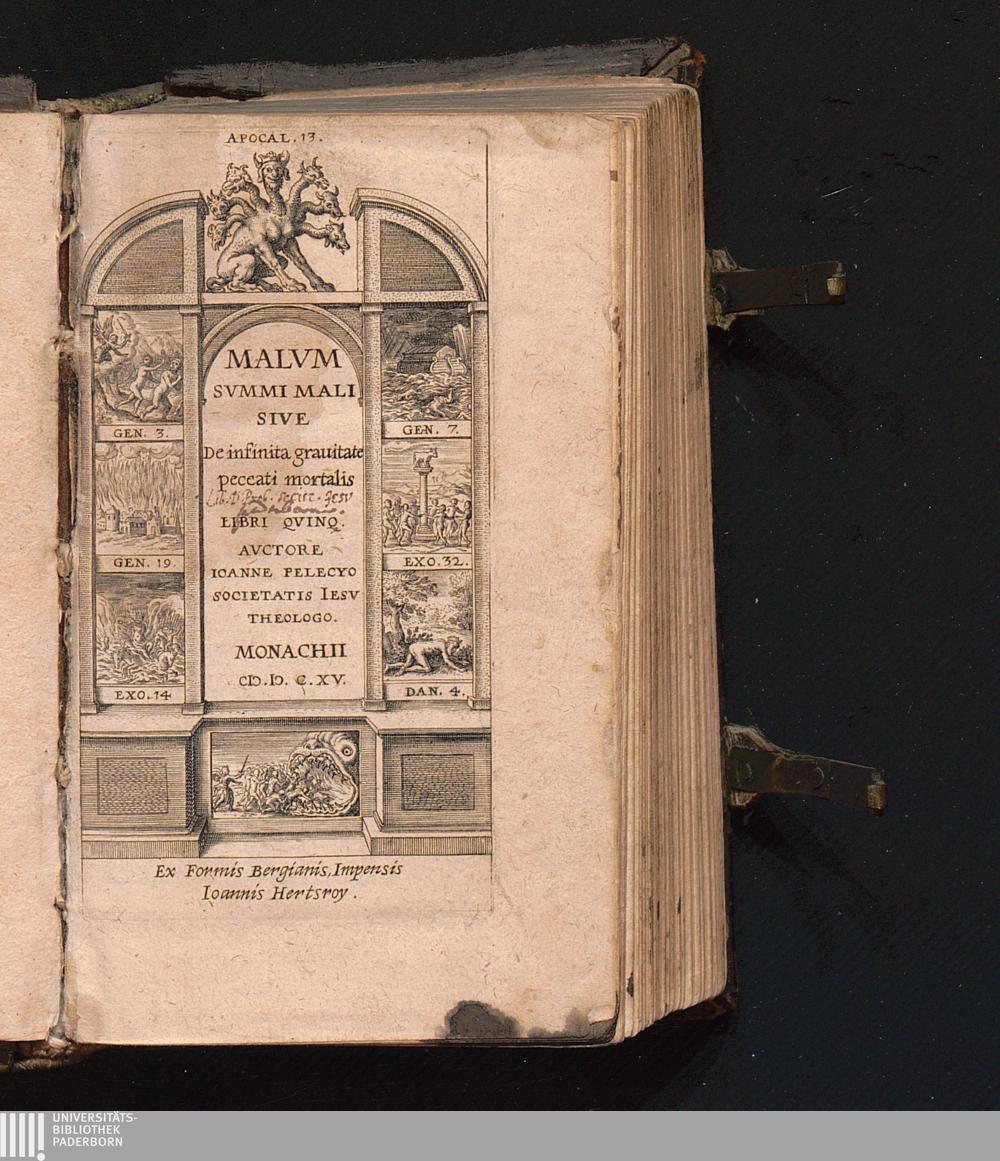 APOCAL. 13.
MALVM
SVMMI MALI
SIVE
De infinita grauitate
peccati mortalis
Lib. Prob. Societ. Jesu
LIBRI QVINQ.
AVCTORE
IOANNE PELECYO
SOCIETATIS IESV
THEOLOGO.
MONACHII
CIↃ.IↃ. C.XV.
GEN. 3.
GEN. 19.
EXO. 14
GEN. 7.
EXO. 32.
DAN. 4.
Ex Formis Bergianis, Impensis
Ioannis Hertsroy.
UNIVERSITÄTS-
BIBLIOTHEK
PADERBORN